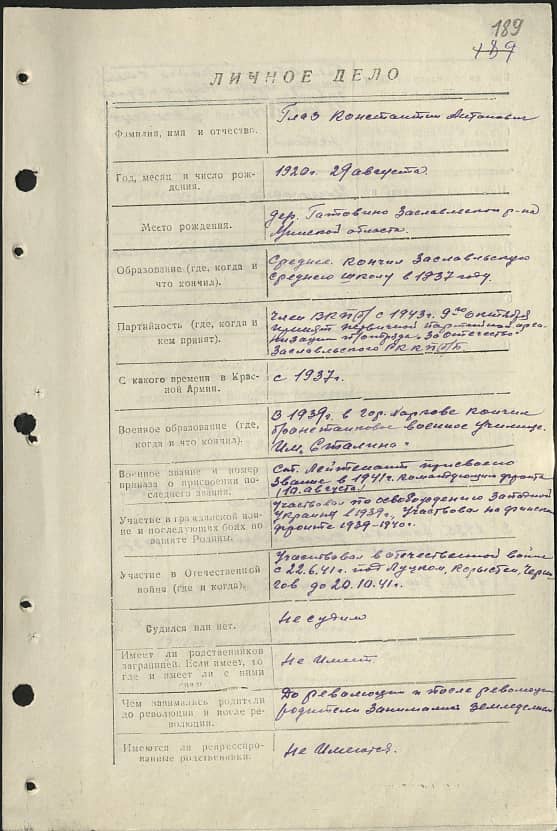 189
189
ЛИЧНОЕ ДЕЛО
Фамилия, имя и отчество.
Глаз Константин Антонович
Год, месяц и число рож-
дения.
1920г. 29 августа.
Место рождения.
дер. Гатовино Заславльского р-на
Минской области.
Образование (где, когда и
что кончил).
Среднее. кончил Заславльскую
среднюю школу в 1937 году.
Партийность (где, когда и
кем принят).
Член ВКП(б) с 1943г. 9го октября
принят первичной парт
низации п/отряда "За Отечество"
Заславльского РККП(б)Б
С какого времени в Крас-
ной Армии.
с 1937г.
Военное образование (где,
когда и что кончил).
В 1939г. в гор. Харькове кончил
бронетанковое военное училище
Им. Сталина.
Военное звание и номер
приказа о присвоении по-
следнего звания.
Ст. Лейтенант присвоено
звание в 1941г. командующим фронта
(10 августа)
Участие в гражданской вой-
не и последующих боях по
защите Родины.
Участвовал по освобождению Западной
Украины в 1939г., Участвовал на финском
фронте 1939-1940г.
Участие в Отечественной
война (где и когда).
Участвовал в отечественной войне
с 22.6.41г. под Луцком, Коростен, Черни
гов до 20.10.41г.
Судился или нет.
Не судим
Имеет ли родственников
заграницей. Если имеет, то
где и имеет ли с ними
связь.
Не имеет.
Чем занимались родители
до революции и после ре-
волюции.
До революции и после революции
родители занимались земледелием
Имеются ли репрессиро-
ванные родственники.
Не имеются.